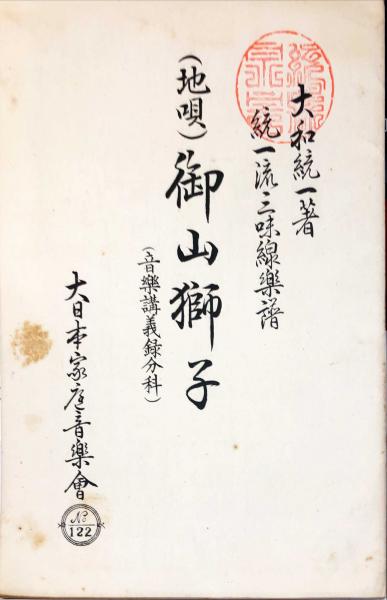 大和統一著
統一流三味線樂譜
(地唄)御山獅子
(音樂講義録分科)
大日本家庭音樂會
No
122